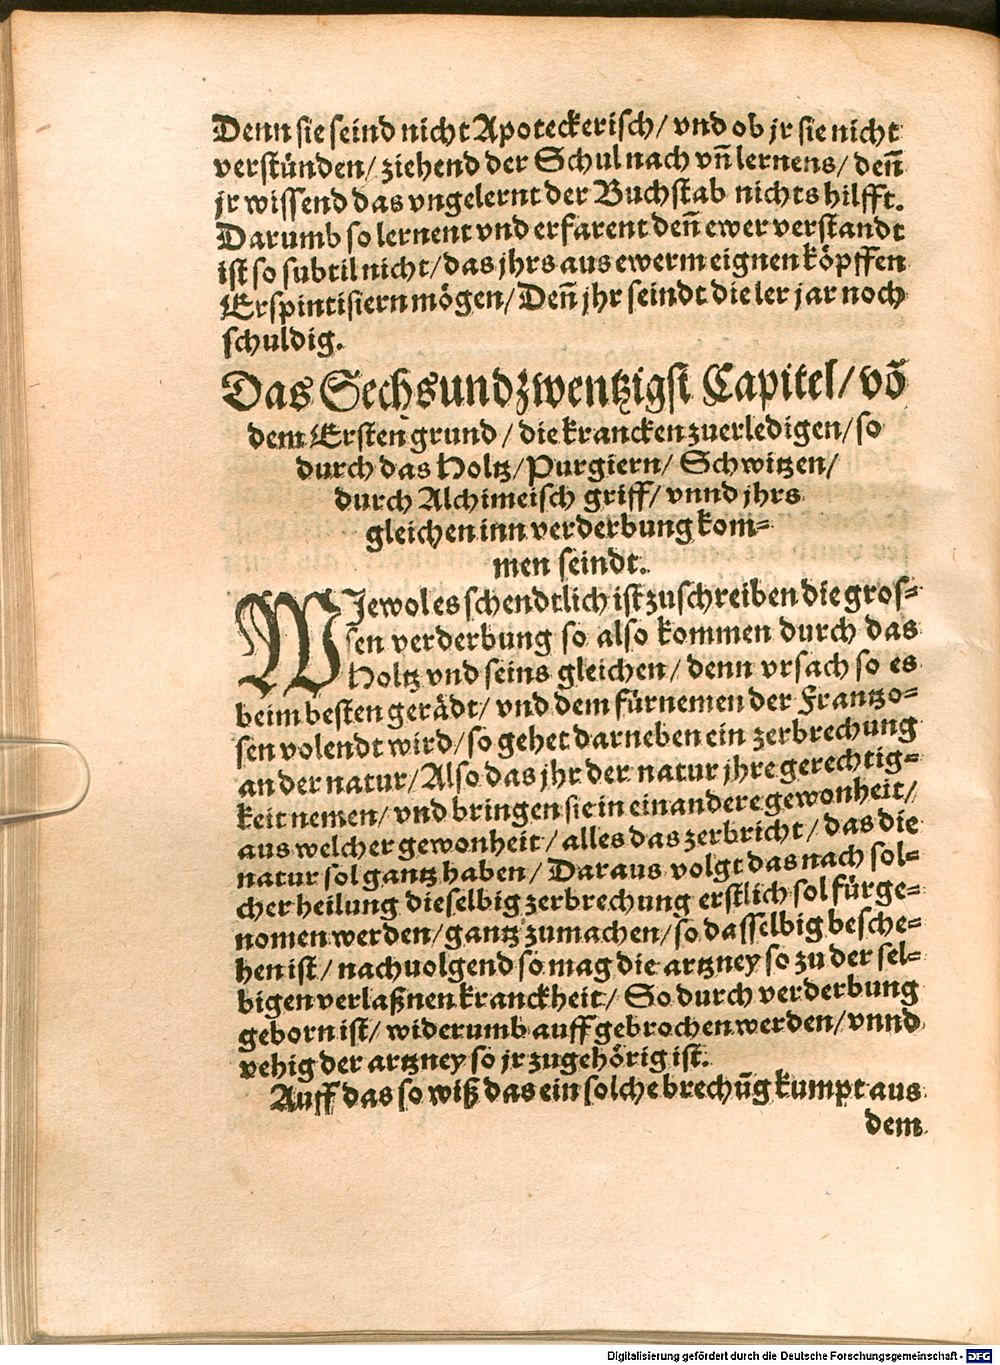 Denn sie seind nicht Apoteckerisch/ vnd ob jr sie nicht
verstünden/ ziehend der Schul nach vñ lernens/ deñ
jr wissend das vngelernt der Buchstab nichts hilfft.
Darumb so lernent vnd erfarent deñ ewer verstandt
ist so subtil nicht/ das jhrs aus ewerm eignen köpffen
Erspintisiern mögen/ Deñ jhr seindt die ler jar noch
schuldig.
Das Sechsundzwentzigst Capitel/ võ
dem Ersten grund / die krancken zuerledigen/ so
durch das Holtz/ Purgiern/ Schwitzen/
durch Alchimeisch griff/ vnnd jhrs
gleichen inn verderbung kom=
men seindt.
WJewol es schendtlich ist zuschreiben die gros=
sen verderbung so also kommen durch das
Holtz vnd seins gleichen/ denn vrsach so es
beim besten gerädt/ vnd dem fürnemen der Frantzo=
sen volendt wird/ so gehet darneben ein zerbrechung
an der natur/ Also das jhr der natur jhre gerechtig=
keit nemen/ vnd bringen sie in ein andere gewonheit/
aus welcher gewonheit/ alles das zerbricht/ das die
natur sol gantz haben/ Daraus volgt das nach sol=
cher heilung dieselbig zerbrechung erstlich sol fürge=
nomen werden/ gantz zumachen/ so dasselbig besche=
hen ist/ nachuolgend so mag die artzney so zu der sel=
bigen verlaßnen kranckheit/ So durch verderbung
geborn ist/ widerumb auff gebrochen werden/ vnnd
vehig der artzney so jr zugehörig ist.
Auff das so wiß das ein solche brechũg kumpt aus
dem
Digitalisierung gefördert durch die Deutsche Forschungsgemeinschaft - DFG